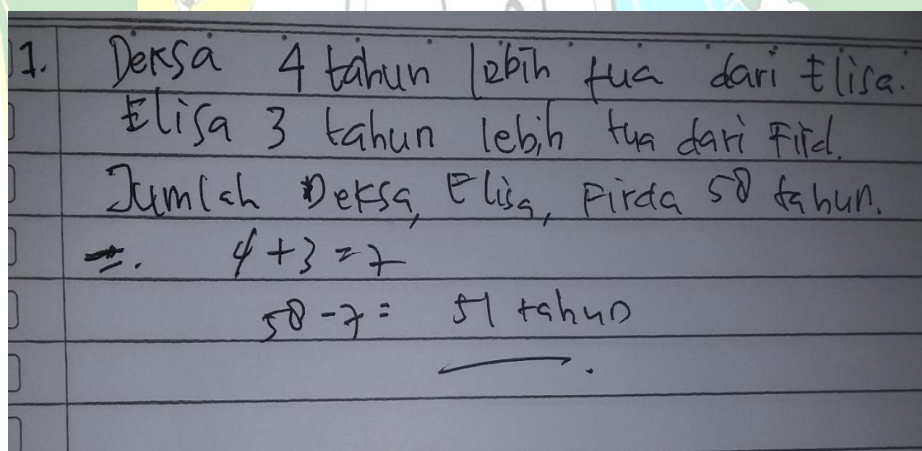 1. Deksa 4 tahun lebih tua dari Elisa.
Elisa 3 tahun lebih tua dari Fird.
Jumlah Deksa, Elisa, Firda 58 tahun.
4 + 3 = 7
58 - 7 = 51 tahun